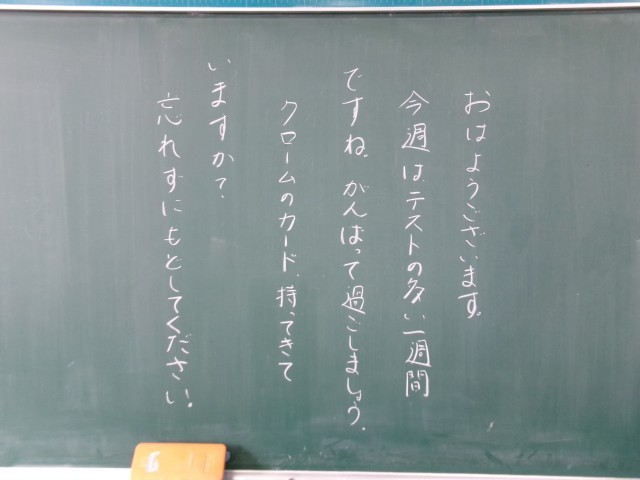 おはようございます。
今週は、テストの多い一週間
ですね。がんばって過ごしましょう。
クロームのカード、持ってきて
いますか？
忘れずにもどしてください。